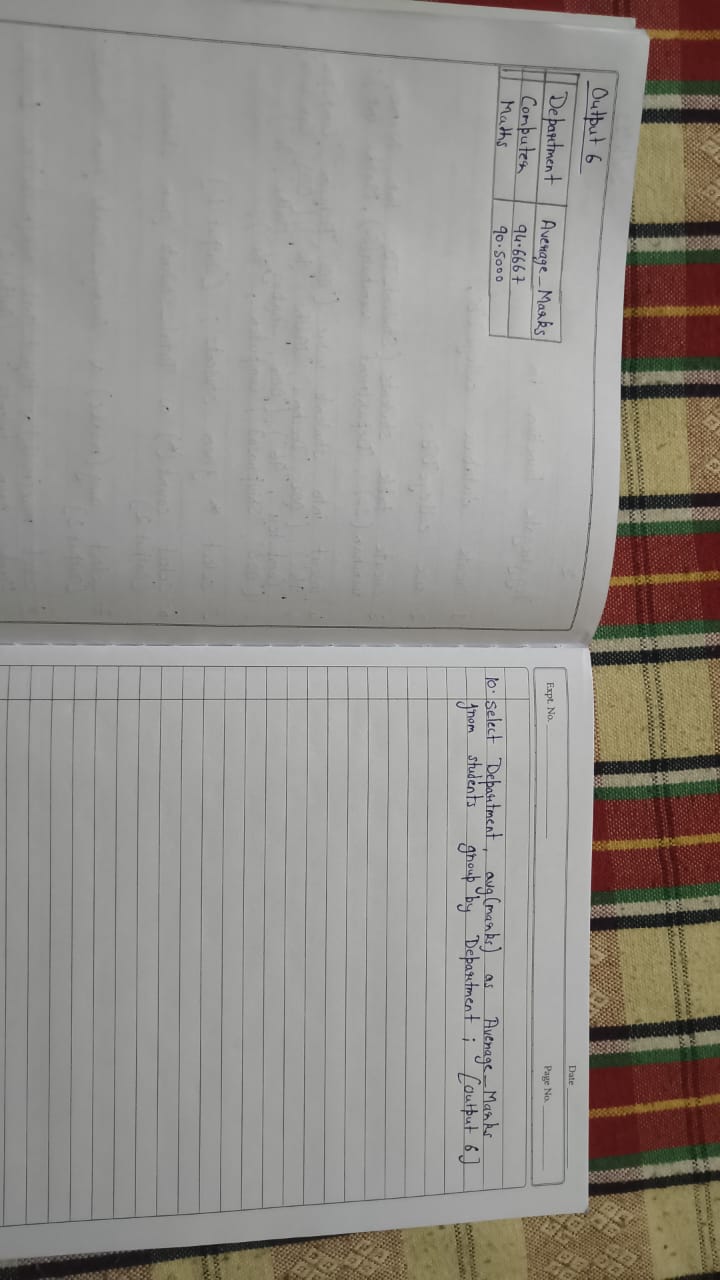 Output 6
Department Average_Marks
Computer 94.6667
Maths 90.5000
Date
Expt. No.
Page No.
10. select Department, avg(marks) as Average_Marks
from students group by Department; [Output 6]